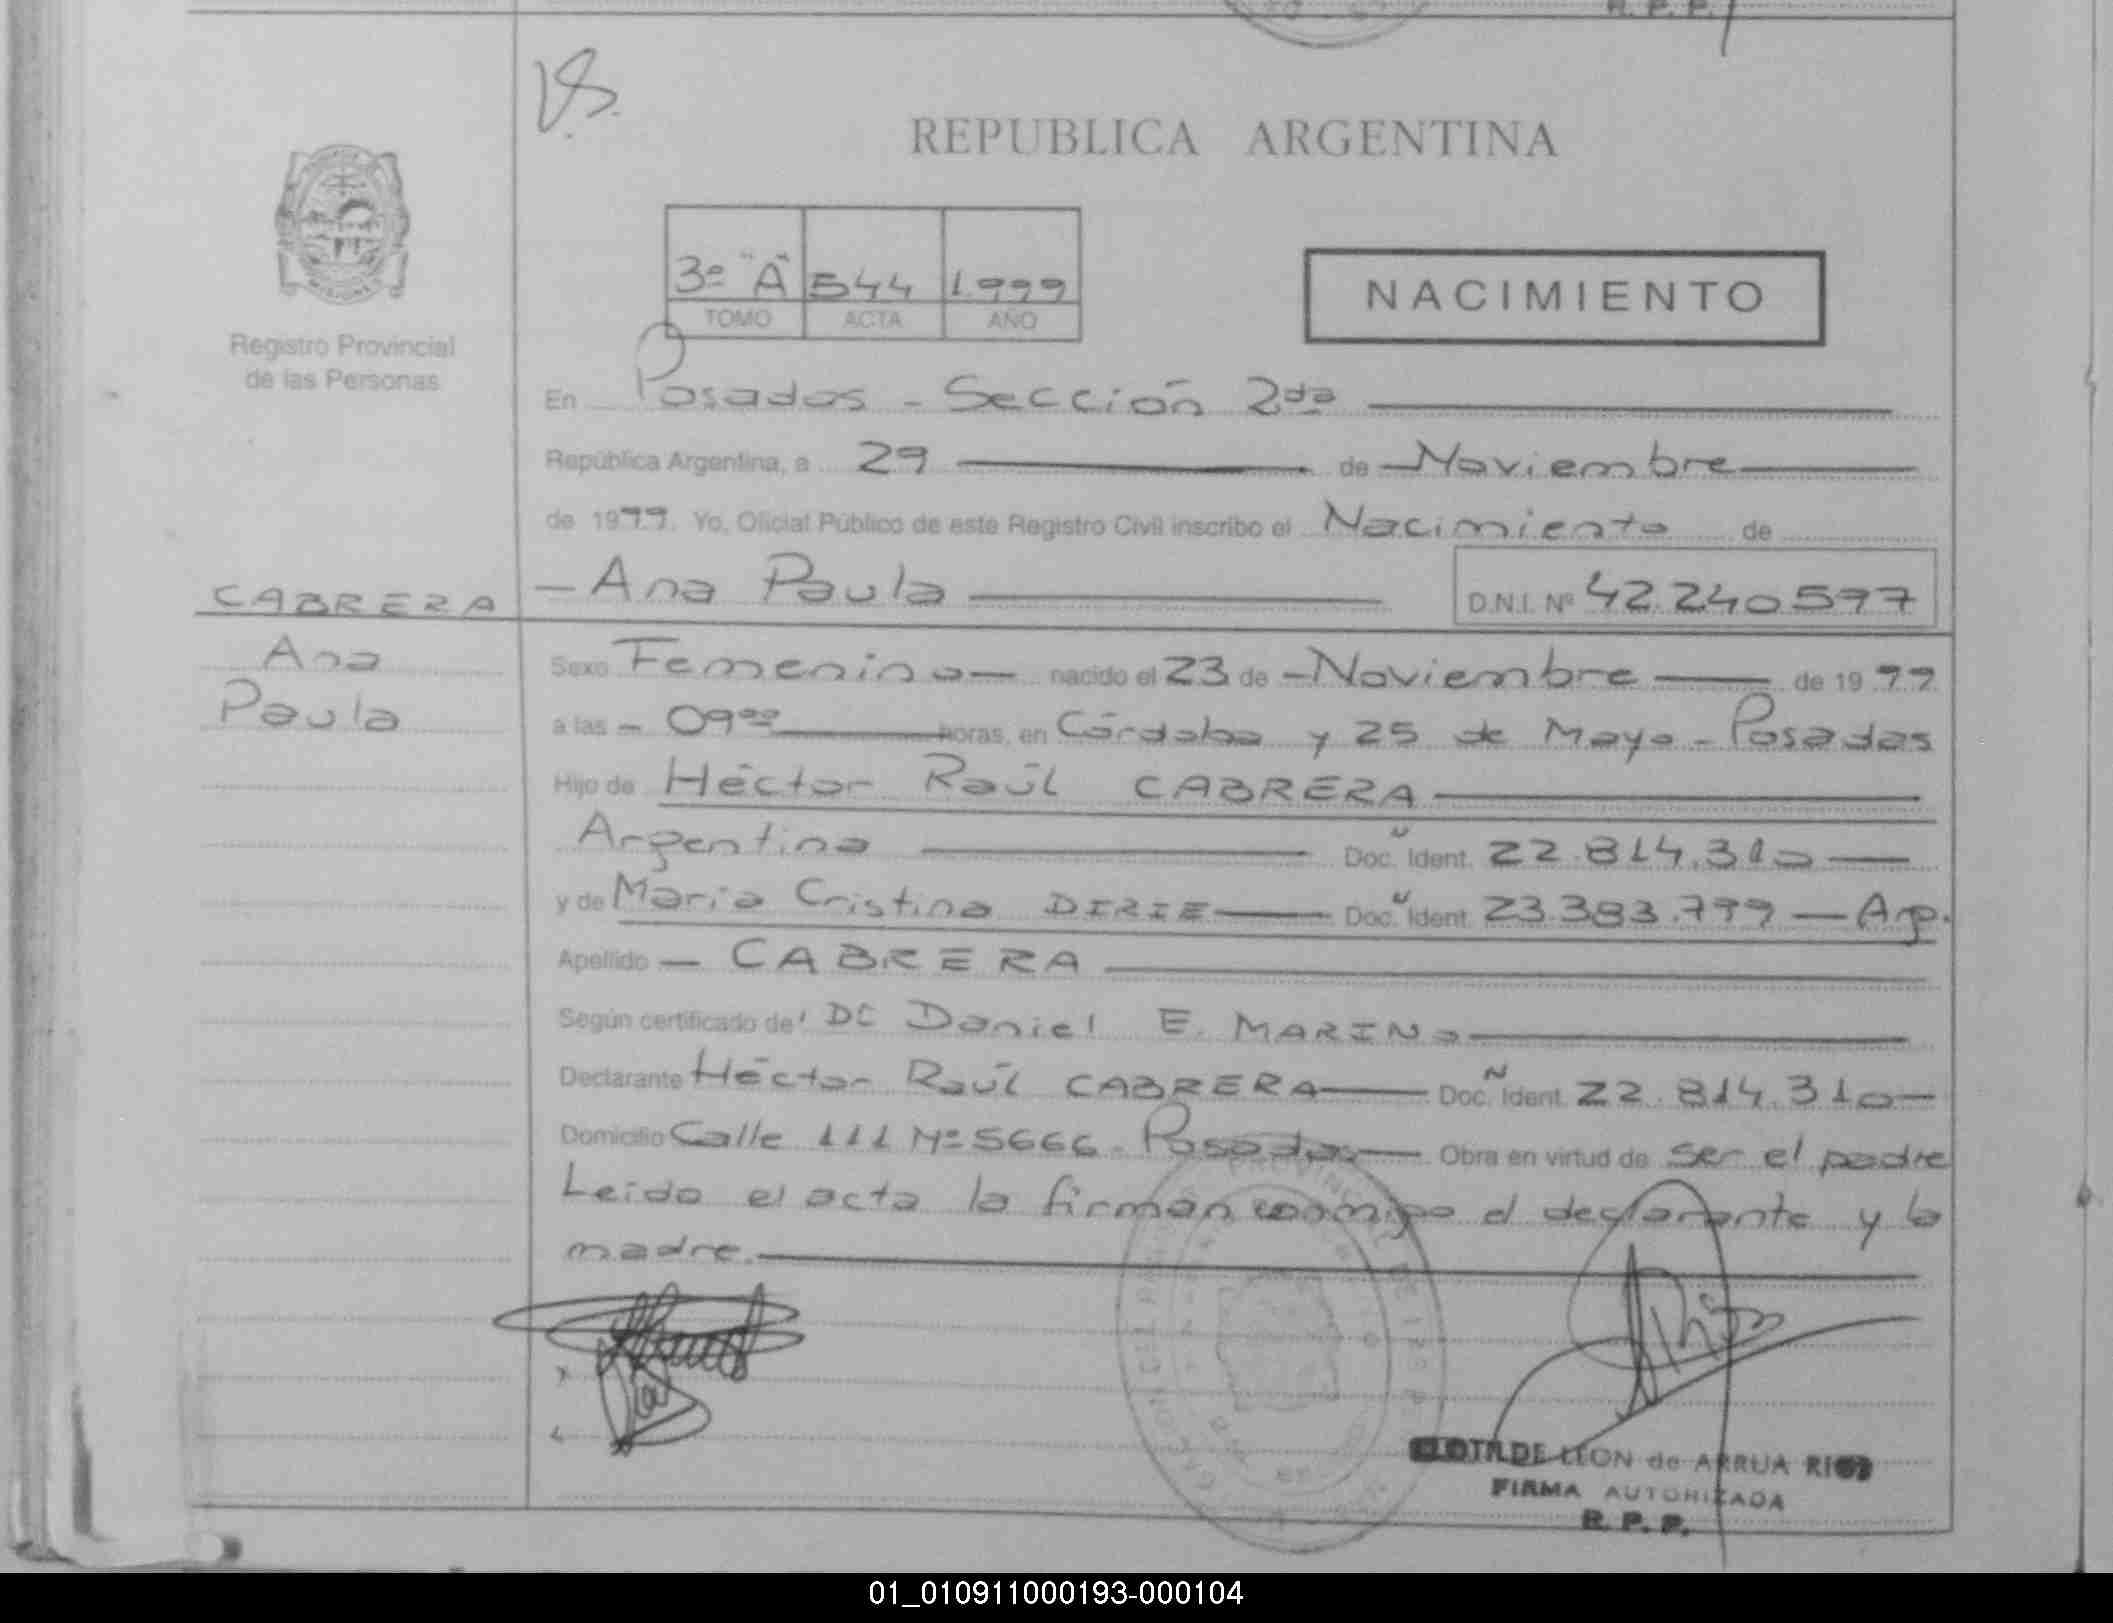 R. P. P.
REPUBLICA ARGENTINA
3º "A" 544 1.999
TOMO ACTA AÑO
NACIMIENTO
Registro Provincial
de las Personas
En Posadas - Sección 2da
República Argentina, a 29 de Noviembre
de 1999. Yo, Oficial Público de este Registro Civil inscribo el Nacimiento de
CABRERA
- Ana Paula D.N.I. Nº 42.240577
Ana
Paula
Sexo Femenino nacido el 23 de - Noviembre de 1999
a las - 09 00 horas, en Córdoba y 25 de Mayo - Posadas
Hijo de Héctor Raúl CABRERA
Argentina Doc. Ident. 22.814.310
y de María Cristina DIRIE Doc. Ident. 23.383.799 - Arg.
Apellido - CABRERA
Según certificado de Daniel E. MARINO
Declarante Héctor Raúl CABRERA Doc. Ident. 22.814.310
Domicilio Calle 111 Nº 5666 - Posadas Obra en virtud de ser el padre
Leido el acta la firman conmigo el declarante y la
madre.
CLOTILDE LEON de ARRUA RIOS
FIRMA AUTORIZADA
R. P. P.
01_010911000193-000104